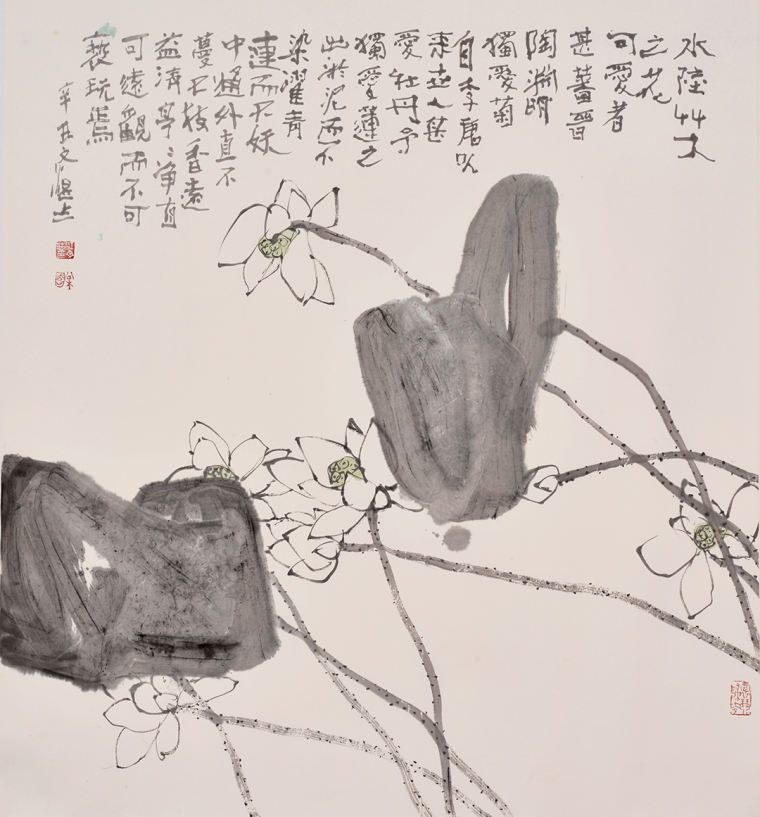 水陸艸木
之花
可愛者
甚蕃晋
陶淵明
獨愛菊
自李唐以
来世人甚
愛牡丹予
獨愛蓮之
出淤泥而不
染濯青
連而不妖
中通外直不
蔓不枝香遠
益清亭々净直
可遠觀而不可
褻玩焉
辛丑文